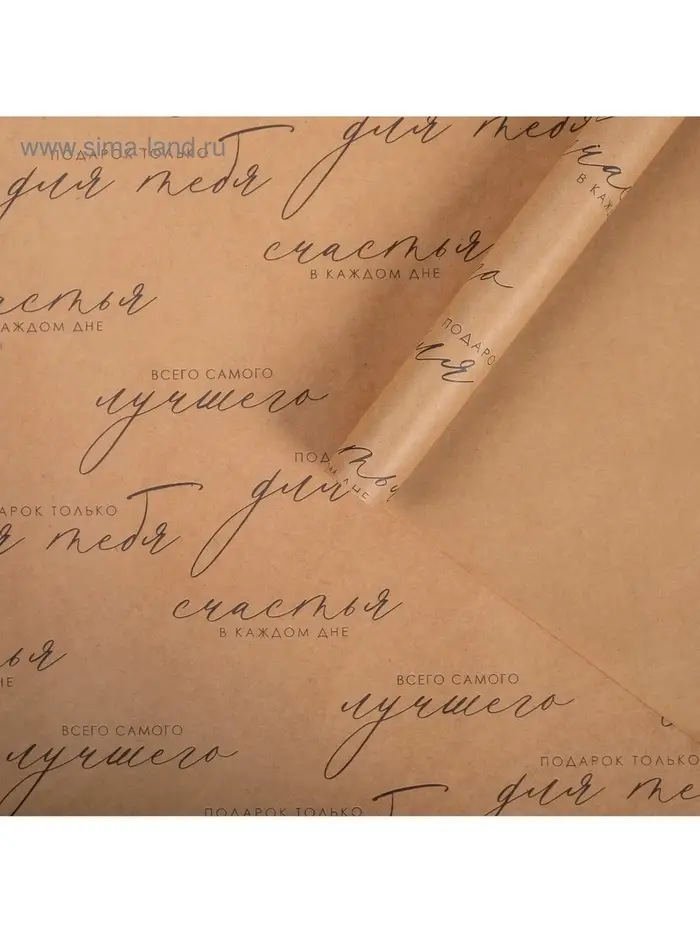 www.sima-land.ru
для тебя
ПОДАРОК ТОЛЬКО
для тебя
В КАЖ
счастья
В КАЖДОМ ДНЕ
астья
АЖДОМ ДНЕ
ПОДАРО
ия
ВСЕГО САМОГО
лучшего
ПОД
для
АРОК ТОЛЬКО
я тебя
счастья
В КАЖДОМ ДНЕ
ья
НЕ
ВСЕГО САМОГО
лучшего
ВСЕГО САМОГО
лучшего
ПОДАРОК ТОЛЬКО
для те
ПОДАРОК ТОЛЬКО